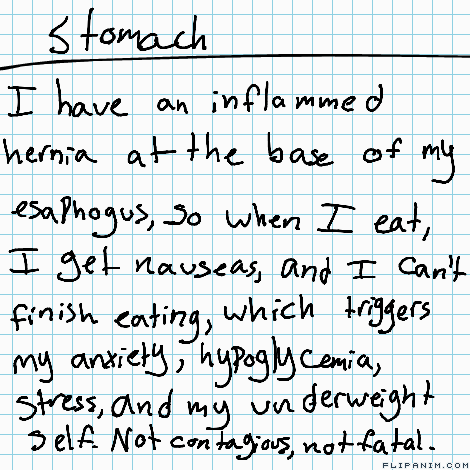 Stomach
I have an inflammed
hernia at the base of my
esaphogus, so when I eat,
I get nauseas, and I can't
finish eating, which triggers
my anxiety, hypoglycemia,
stress, and my underweight
self. Not contagious, not fatal.
FLIPANIM.COM